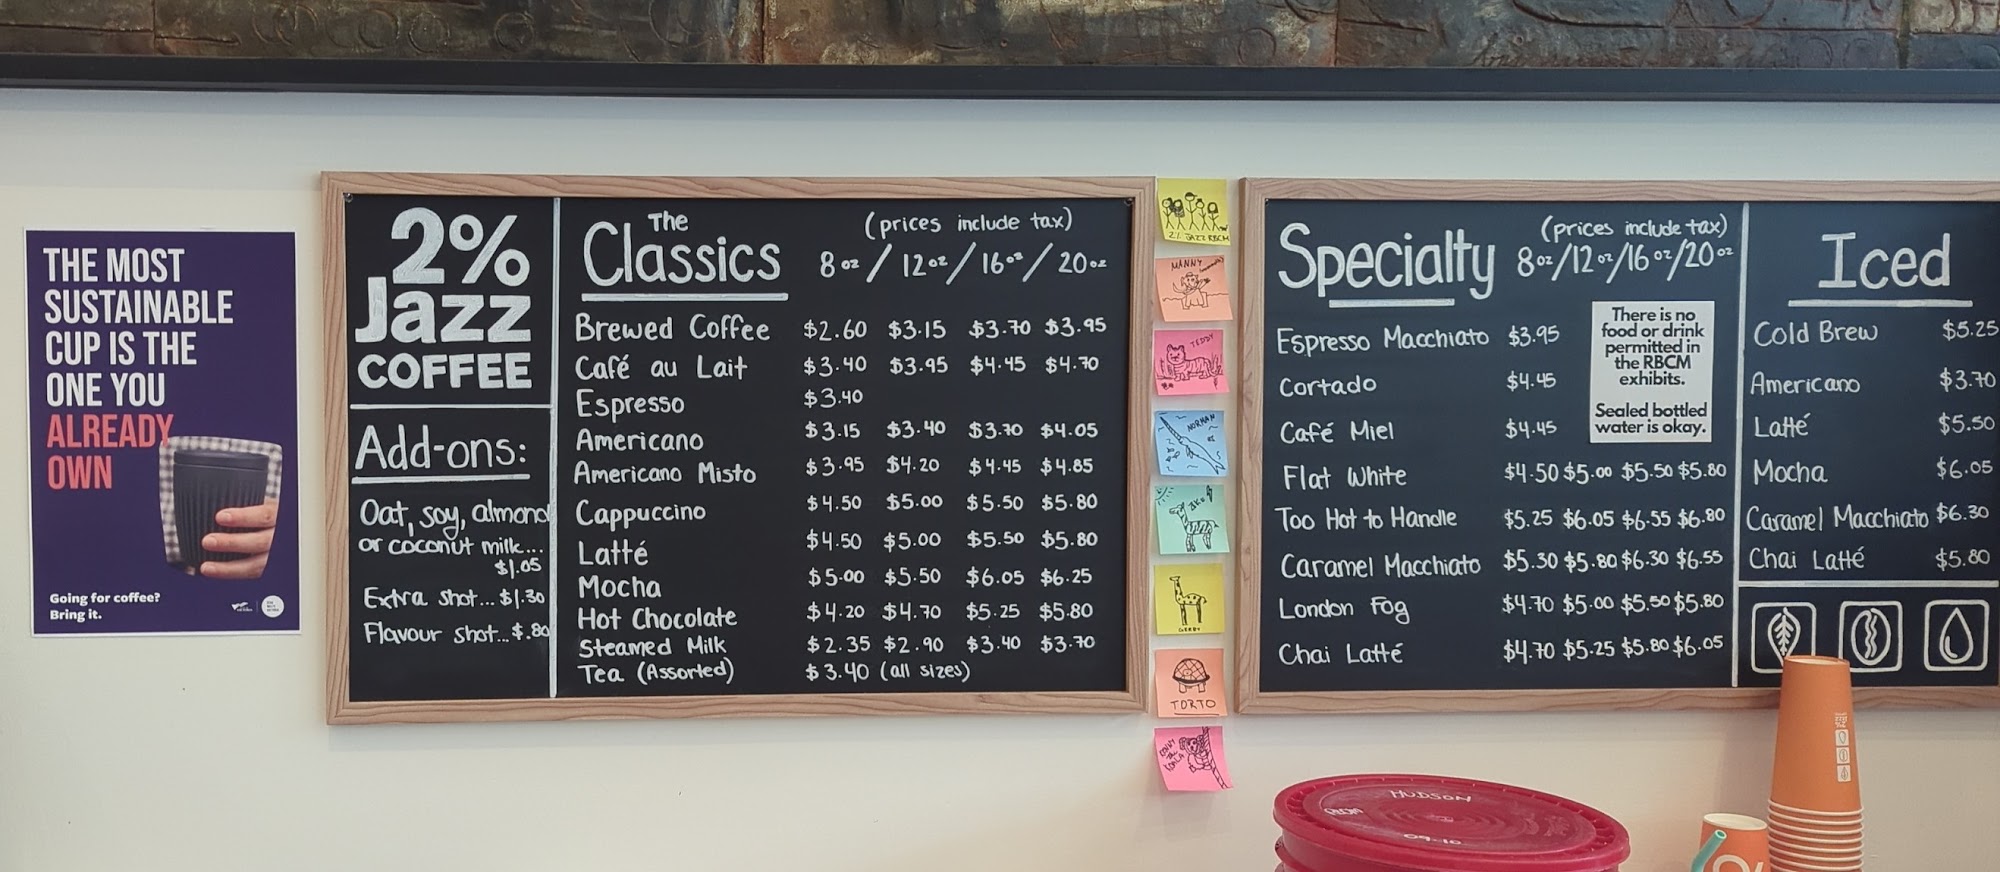 THE MOST
SUSTAINABLE
CUP IS THE
ONE YOU
ALREADY
OWN
Going for coffee?
Bring it.
2%
Jazz
COFFEE
Add-ons:
Oat, soy, almond
or coconut milk...
$1.05
Extra shot... $1.30
Flavour shot... $.80
The
Classics
(prices include tax)
8oz / 12oz / 16oz / 20oz
Brewed Coffee $2.60 $3.15 $3.70 $3.95
Café au Lait $3.40 $3.95 $4.45 $4.70
Espresso $3.40
Americano $3.15 $3.40 $3.70 $4.05
Americano Misto $3.95 $4.20 $4.45 $4.85
Cappuccino $4.50 $5.00 $5.50 $5.80
Latté $4.50 $5.00 $5.50 $5.80
Mocha $5.00 $5.50 $6.05 $6.25
Hot Chocolate $4.20 $4.70 $5.25 $5.80
Steamed Milk $2.35 $2.90 $3.40 $3.70
Tea (Assorted) $3.40 (all sizes)
2% JAZZ RBCM
MANNY
TEDDY
NORMAN
GERRY
TORTO
KENNY
THE
KOALA
Specialty
(prices include tax)
8oz/12oz/16oz/20oz
Espresso Macchiato $3.95
Cortado $4.45
Café Miel $4.45
Flat White $4.50 $5.00 $5.50 $5.80
Too Hot to Handle $5.25 $6.05 $6.55 $6.80
Caramel Macchiato $5.30 $5.80 $6.30 $6.55
London Fog $4.70 $5.00 $5.50 $5.80
Chai Latté $4.70 $5.25 $5.80 $6.05
There is no
food or drink
permitted in
the RBCM
exhibits.
Sealed bottled
water is okay.
Iced
Cold Brew $5.25
Americano $3.70
Latté $5.50
Mocha $6.05
Caramel Macchiato $6.30
Chai Latté $5.80
HUDSON
09-10